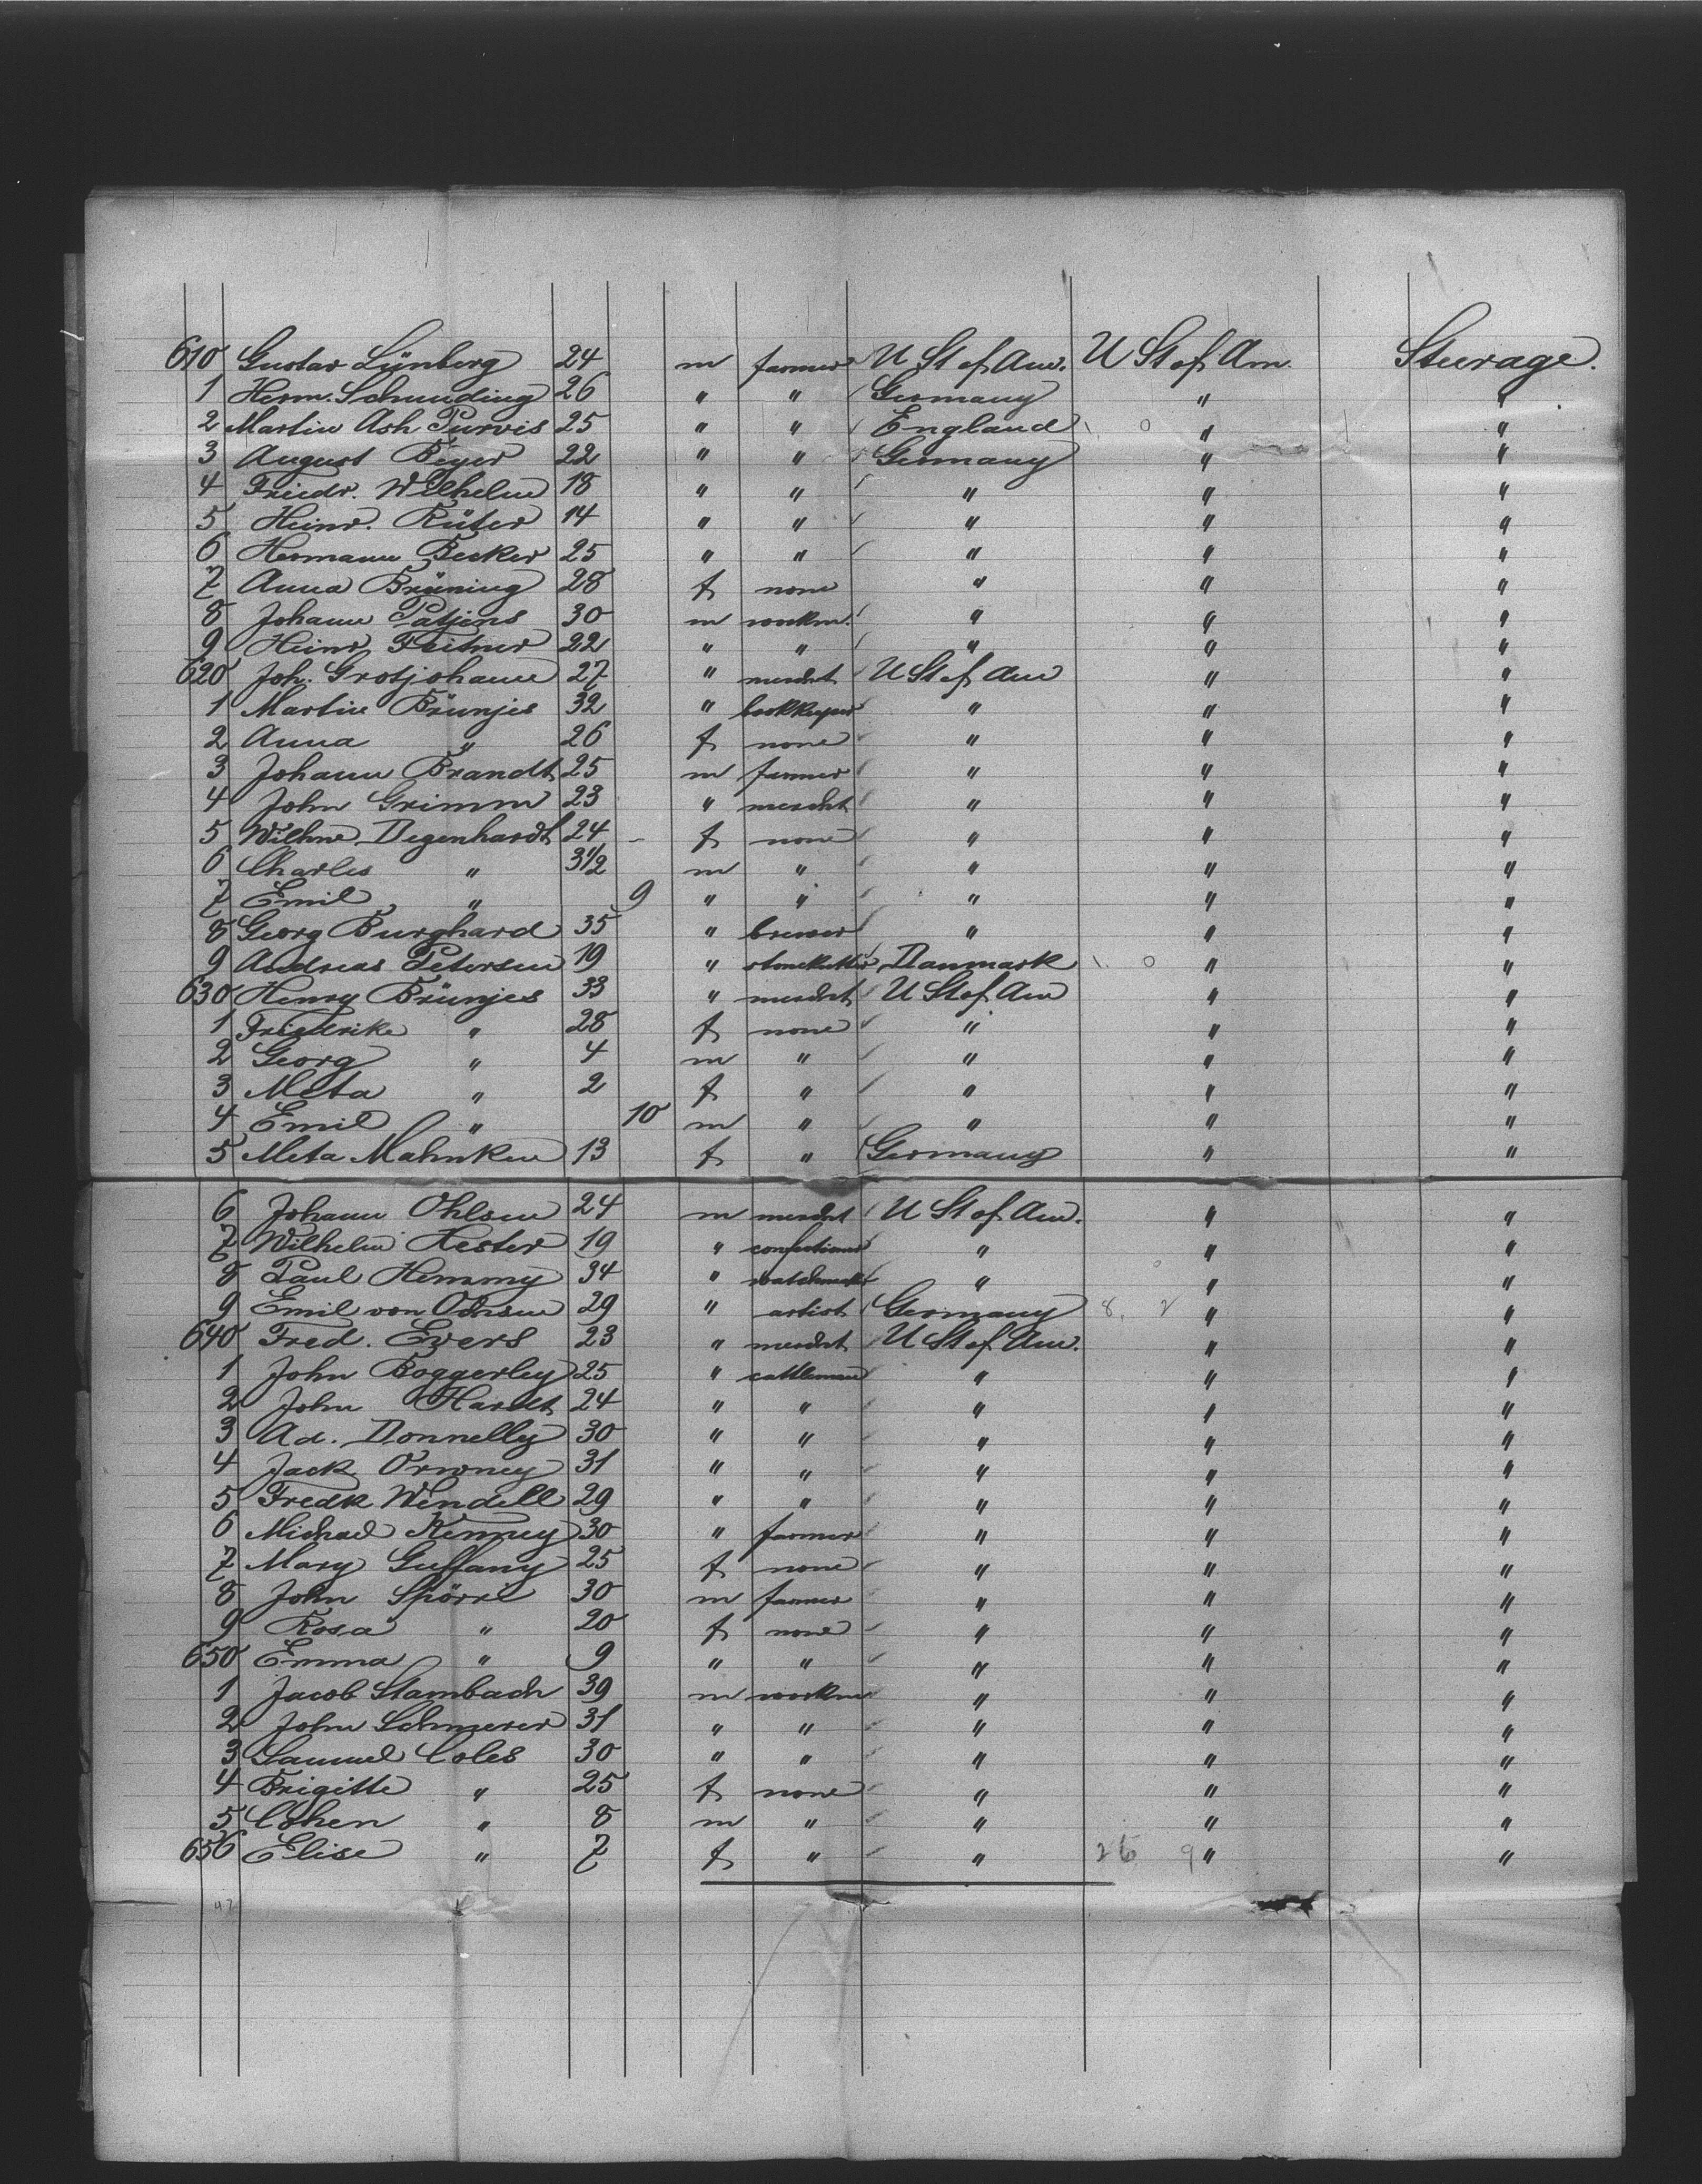 610 Gustav Lünberg 24 m farmer U St of Am. U St of Am. Steerage.
1 Herm. Schmuding 26 " " Germany " "
2 Martin Ash Purvis 25 " " England 1. 0 " "
3 August Beyer 22 " " Germany " "
4 Friedr. Wilhelm 18 " " " " "
5 Heinr. Rüter 14 " " " " "
6 Hermann Becker 25 " " " " "
7 Anna Brüning 28 f none " " "
8 Johann Patjens 30 m workm. " " "
9 Heinr Feitner 22 " " " " "
620 Joh. Grotjohann 27 " mercht U St of Am " "
1 Martin Brünjes 32 " bookkeeper " " "
2 Anna " 26 f none " " "
3 Johann Brandt 25 m farmer " " "
4 John Grimm 23 " mercht " " "
5 Wilhne Degenhardt 24 - f none " " "
6 Charles " 3 1/2 m " " " "
7 Emil " 9 " " " " "
8 Georg Burghard 35 " brewer " " "
9 Andreas Petersen 19 " stonekutter Danmark 1. 0 " "
630 Henry Brünjes 33 " mercht U St of Am " "
1 Friedrike " 28 f none " " "
2 Georg " 4 m " " " "
3 Meta " 2 f " " " "
4 Emil " 10 m " " " "
5 Meta Mahnken 13 f " Germany " "
6 Johann Ohlsen 24 m mercht U St of Am. " "
7 Wilhelm Hester 19 " confectioner " " "
8 Paul Hemmy 34 " watchmaker " " "
9 Emil von 29 " artist Germany 8. 2 " "
640 Fred. Evers 23 " mercht U St of Am. " "
1 John Boggerley 25 " cattleman " " "
2 John Hardt 24 " " " " "
3 Ad. Donnelly 30 " " " " "
4 Jack Orwney 31 " " " " "
5 Fredk Wendell 29 " " " " "
6 Michael Kenney 30 " farmer " " "
7 Mary Guffany 25 f none " " "
8 John Spörre 30 m farmer " " "
9 Rosa " 20 f none " " "
650 Emma " 9 " " " " "
1 Jacob Stambach 39 m workm " " "
2 John Schmerer 31 " " " " "
3 Samuel Coles 30 " " " " "
4 Brigitte " 25 f none " " "
5 Cohen " 8 m " " " "
656 Elise " 7 f " " 26 9 " "
47